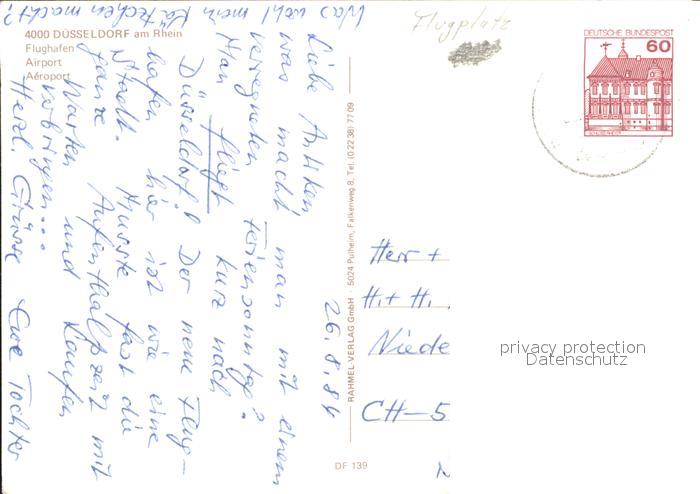 4000 DÜSSELDORF am Rhein
Flughafen
Airport
Aéroport
Flugplatz
DEUTSCHE BUNDESPOST
60
26.8.84
was macht man mit einem
verregneten Feriensonntag?
Man fliegt kurz nach
Düsseldorf! Der neue Flug-
hafen hier ist wie eine
Stadt. Musste fast die
ganze Aufenthaltszeit mit
Warten und Laufen
verbringen...
Herzl. Grüsse Eure Tochter
Was wohl mein Kätzchen macht?
RAHMEL-VERLAG GmbH · 5024 Pulheim, Falkenweg 8, Tel. (0 22 38) 77 09
Herr +
H. + H.
Niede
CH-5
DF 139
privacy protection
Datenschutz